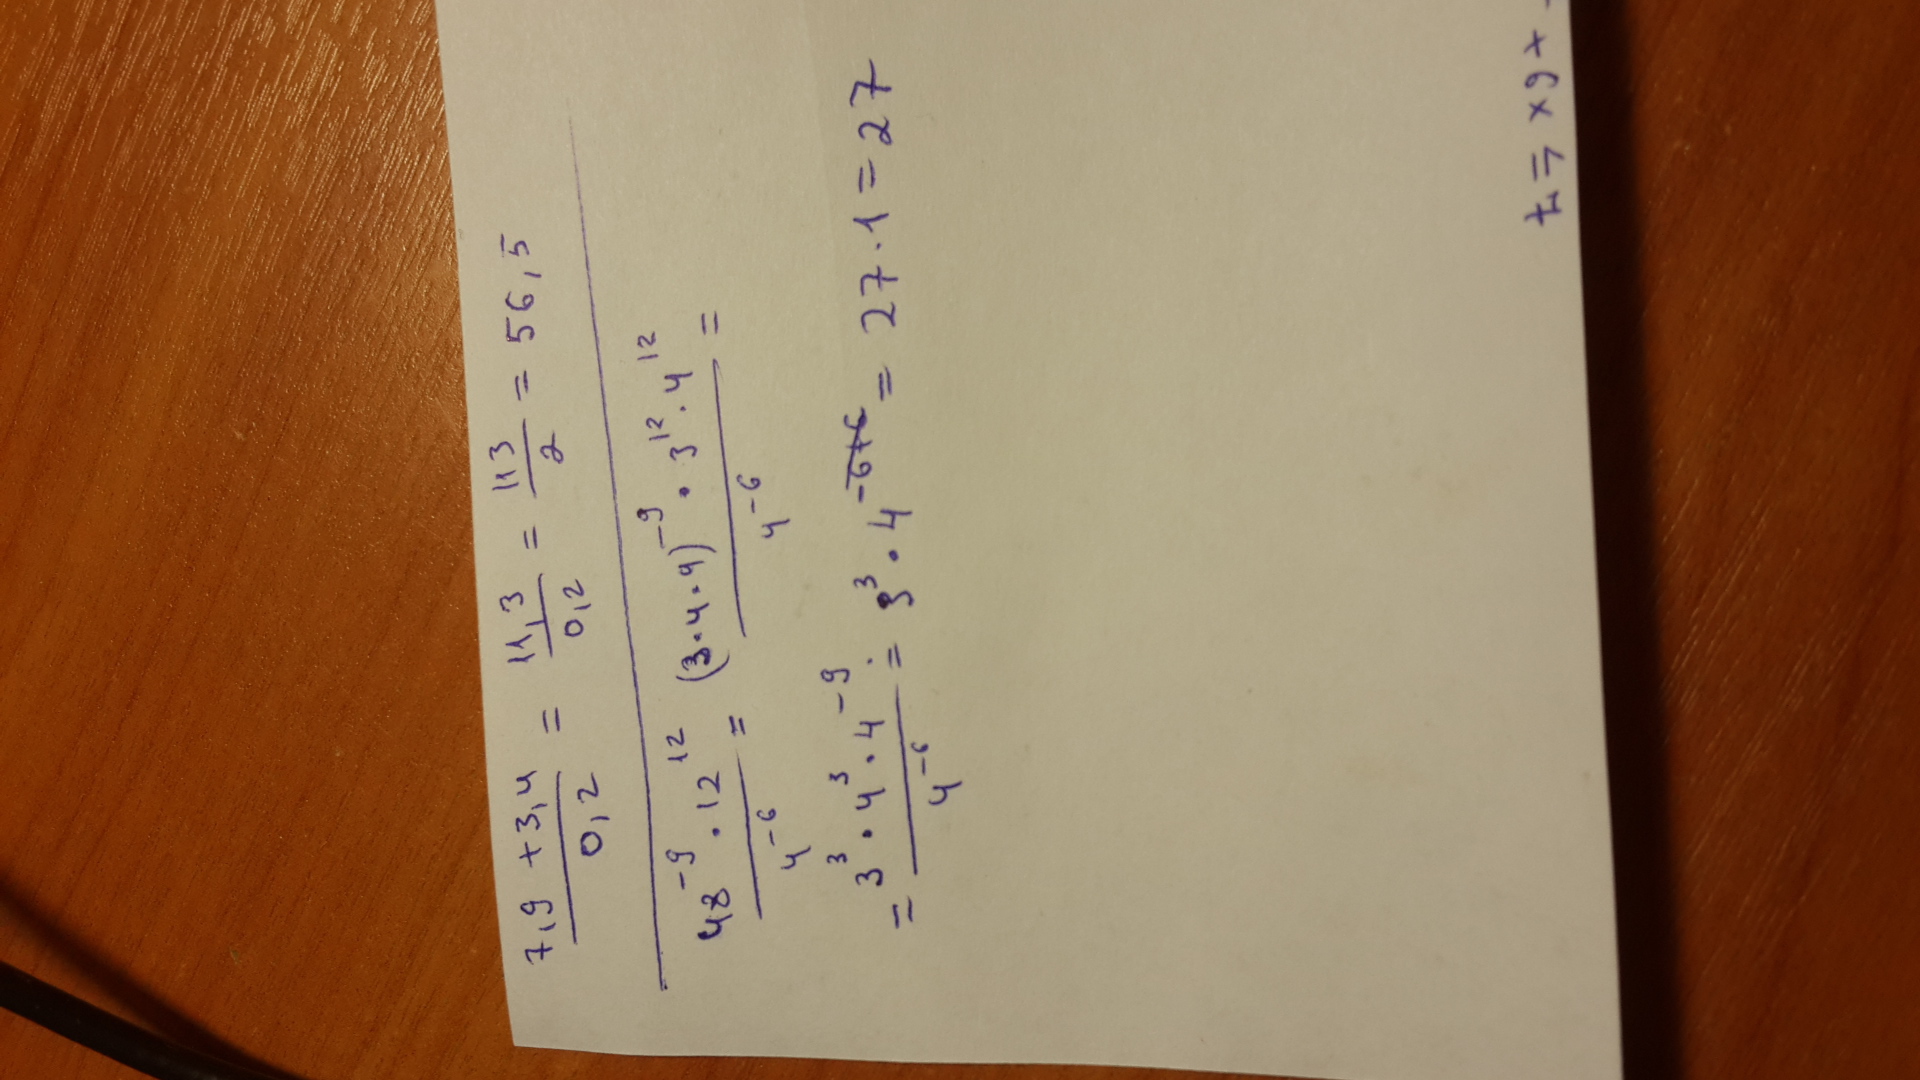 7,9 + 3,4 / 0,2 = 11,3 / 0,2 = 113 / 2 = 56,5
48⁻⁹ · 12¹² / 4⁻⁶ = (3·4·4)⁻⁹ · 3¹² · 4¹² / 4⁻⁶ =
= 3³ · 4³ · 4⁻⁹ / 4⁻⁶ = 3³ · 4⁻⁶⁺⁶ = 27 · 1 = 27
+6x = 7